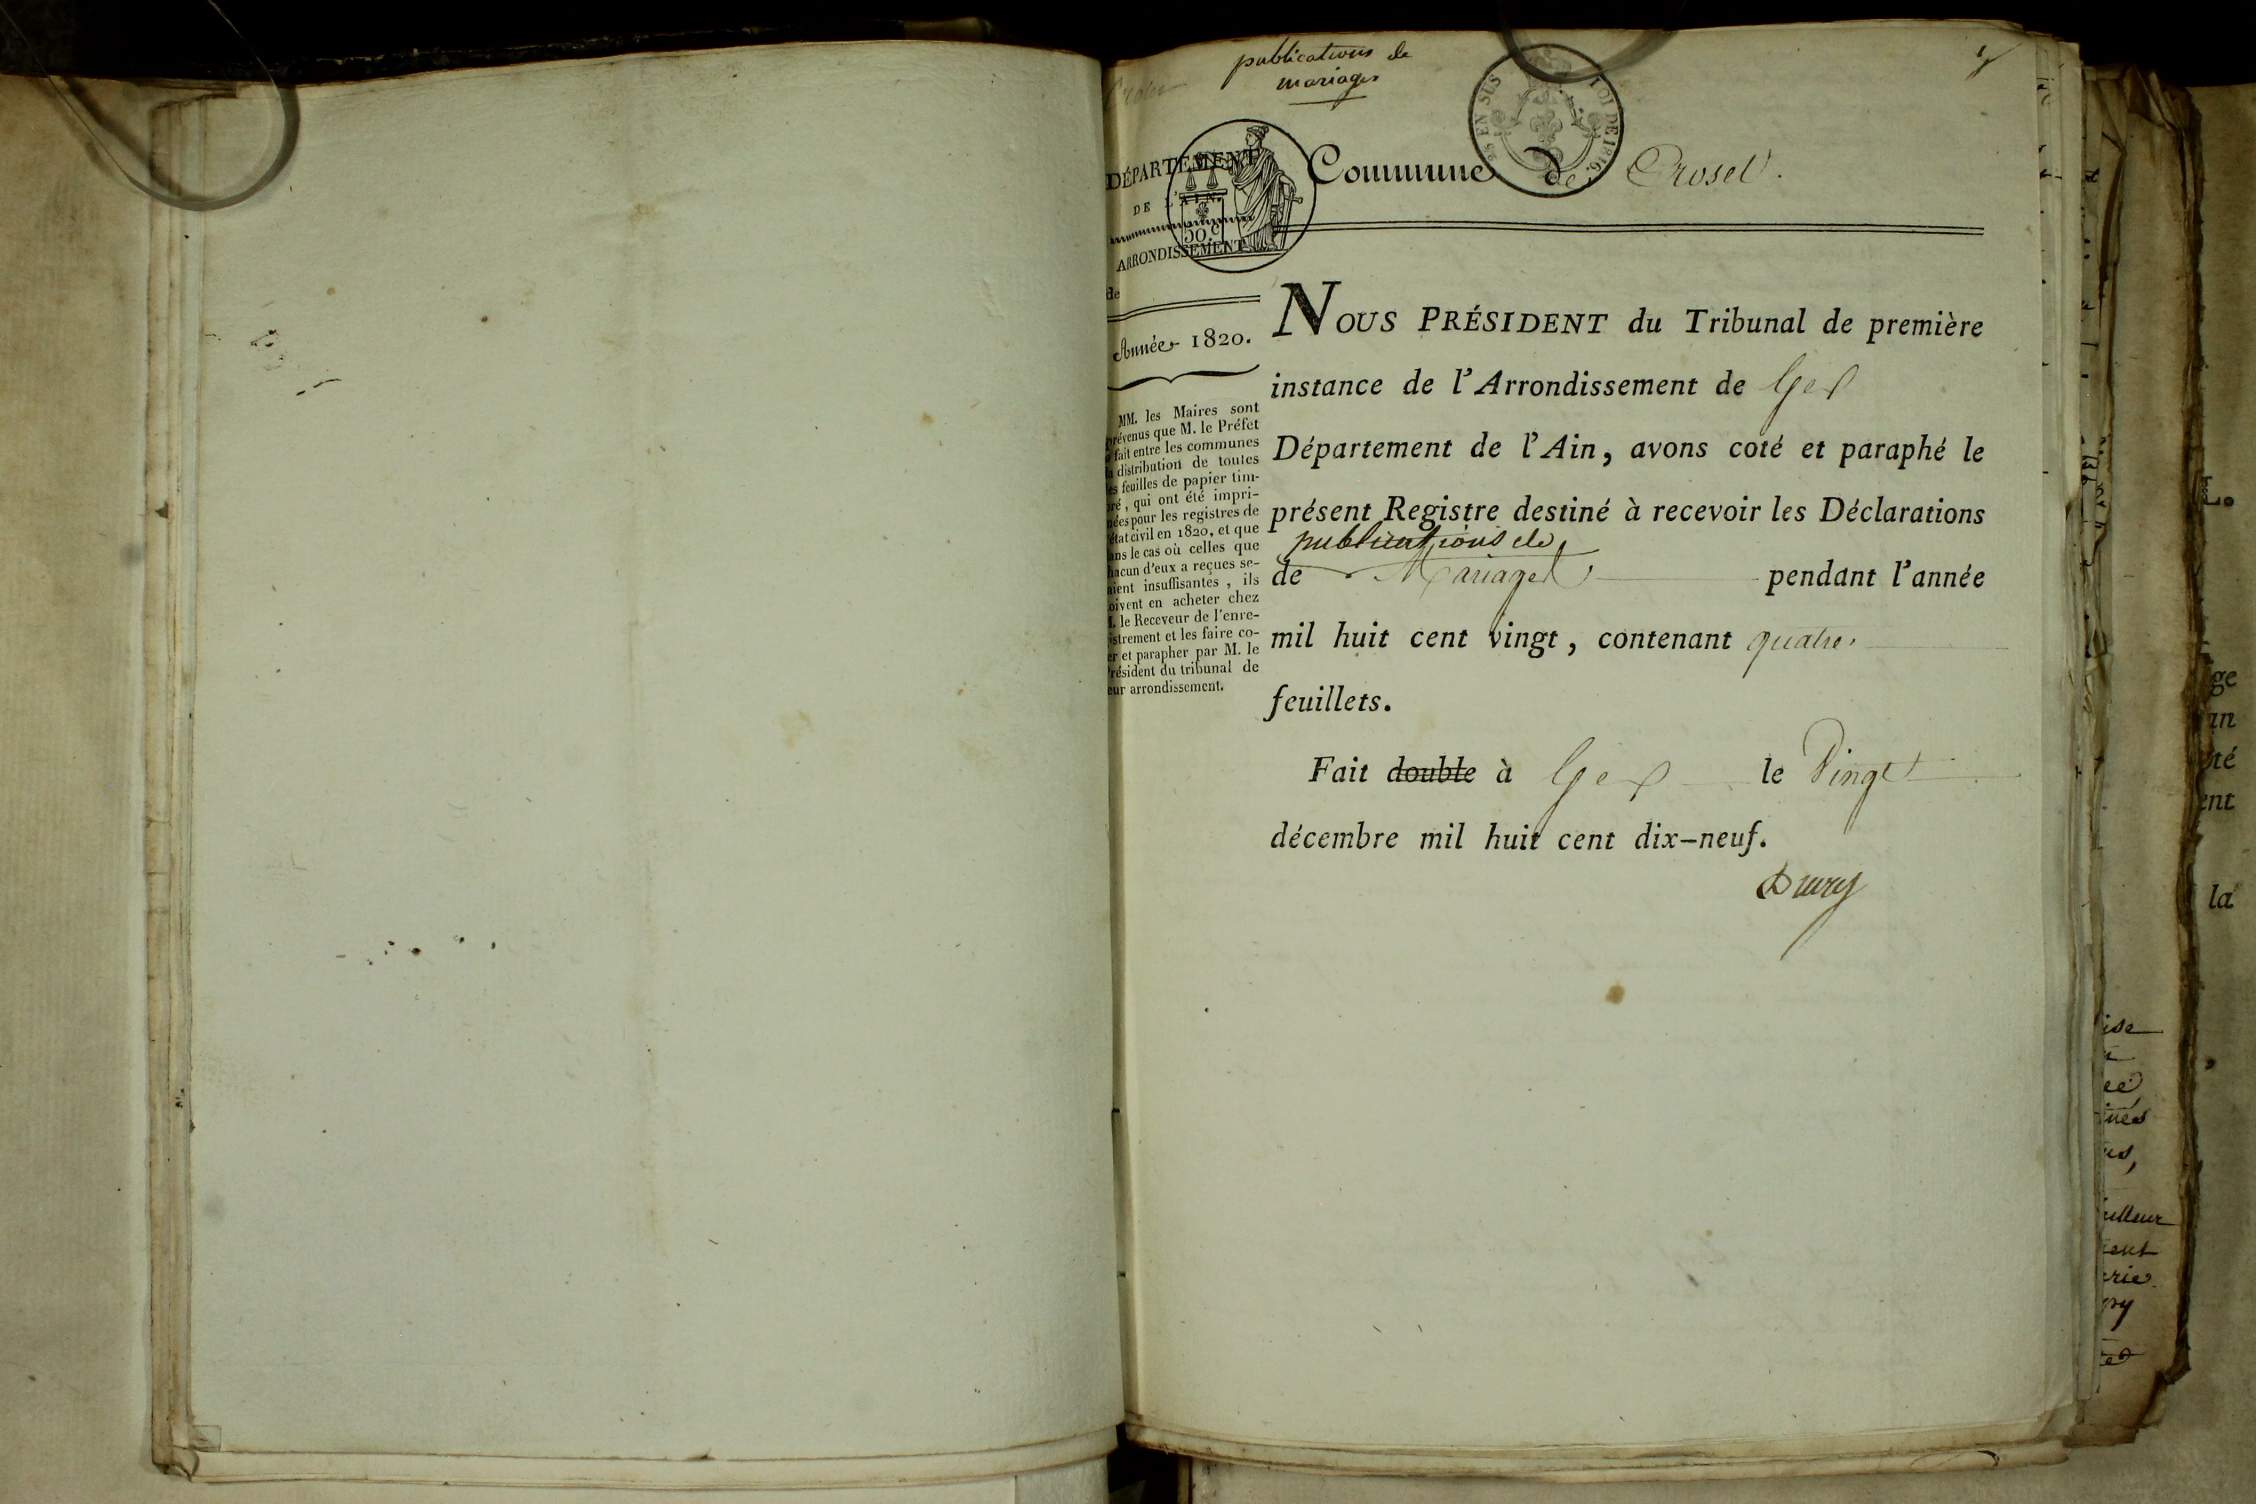 publications de
mariages
25 EN SUS
LOI DE 1816.
DÉPARTEMENT
DE L'AIN.
50.C
ARRONDISSEMENT
de
Commune de Croset
Année 1820.
MM. les Maires sont
prévenus que M. le Préfet
a fait entre les communes
la distribution de toutes
les feuilles de papier tim-
bré, qui ont été impri-
mées pour les registres de
l'état civil en 1820, et que
dans le cas où celles que
chacun d'eux a reçues se-
raient insuffisantes, ils
doivent en acheter chez
M. le Receveur de l'enre-
gistrement et les faire co-
ter et parapher par M. le
Président du tribunal de
leur arrondissement.
NOUS PRÉSIDENT du Tribunal de première
instance de l'Arrondissement de Gex
Département de l'Ain, avons coté et paraphé le
présent Registre destiné à recevoir les Déclarations
publications de
de Mariages pendant l'année
mil huit cent vingt, contenant quatre
feuillets.
Fait double à Gex le Vingt
décembre mil huit cent dix-neuf.
ge
an
té
ent
la